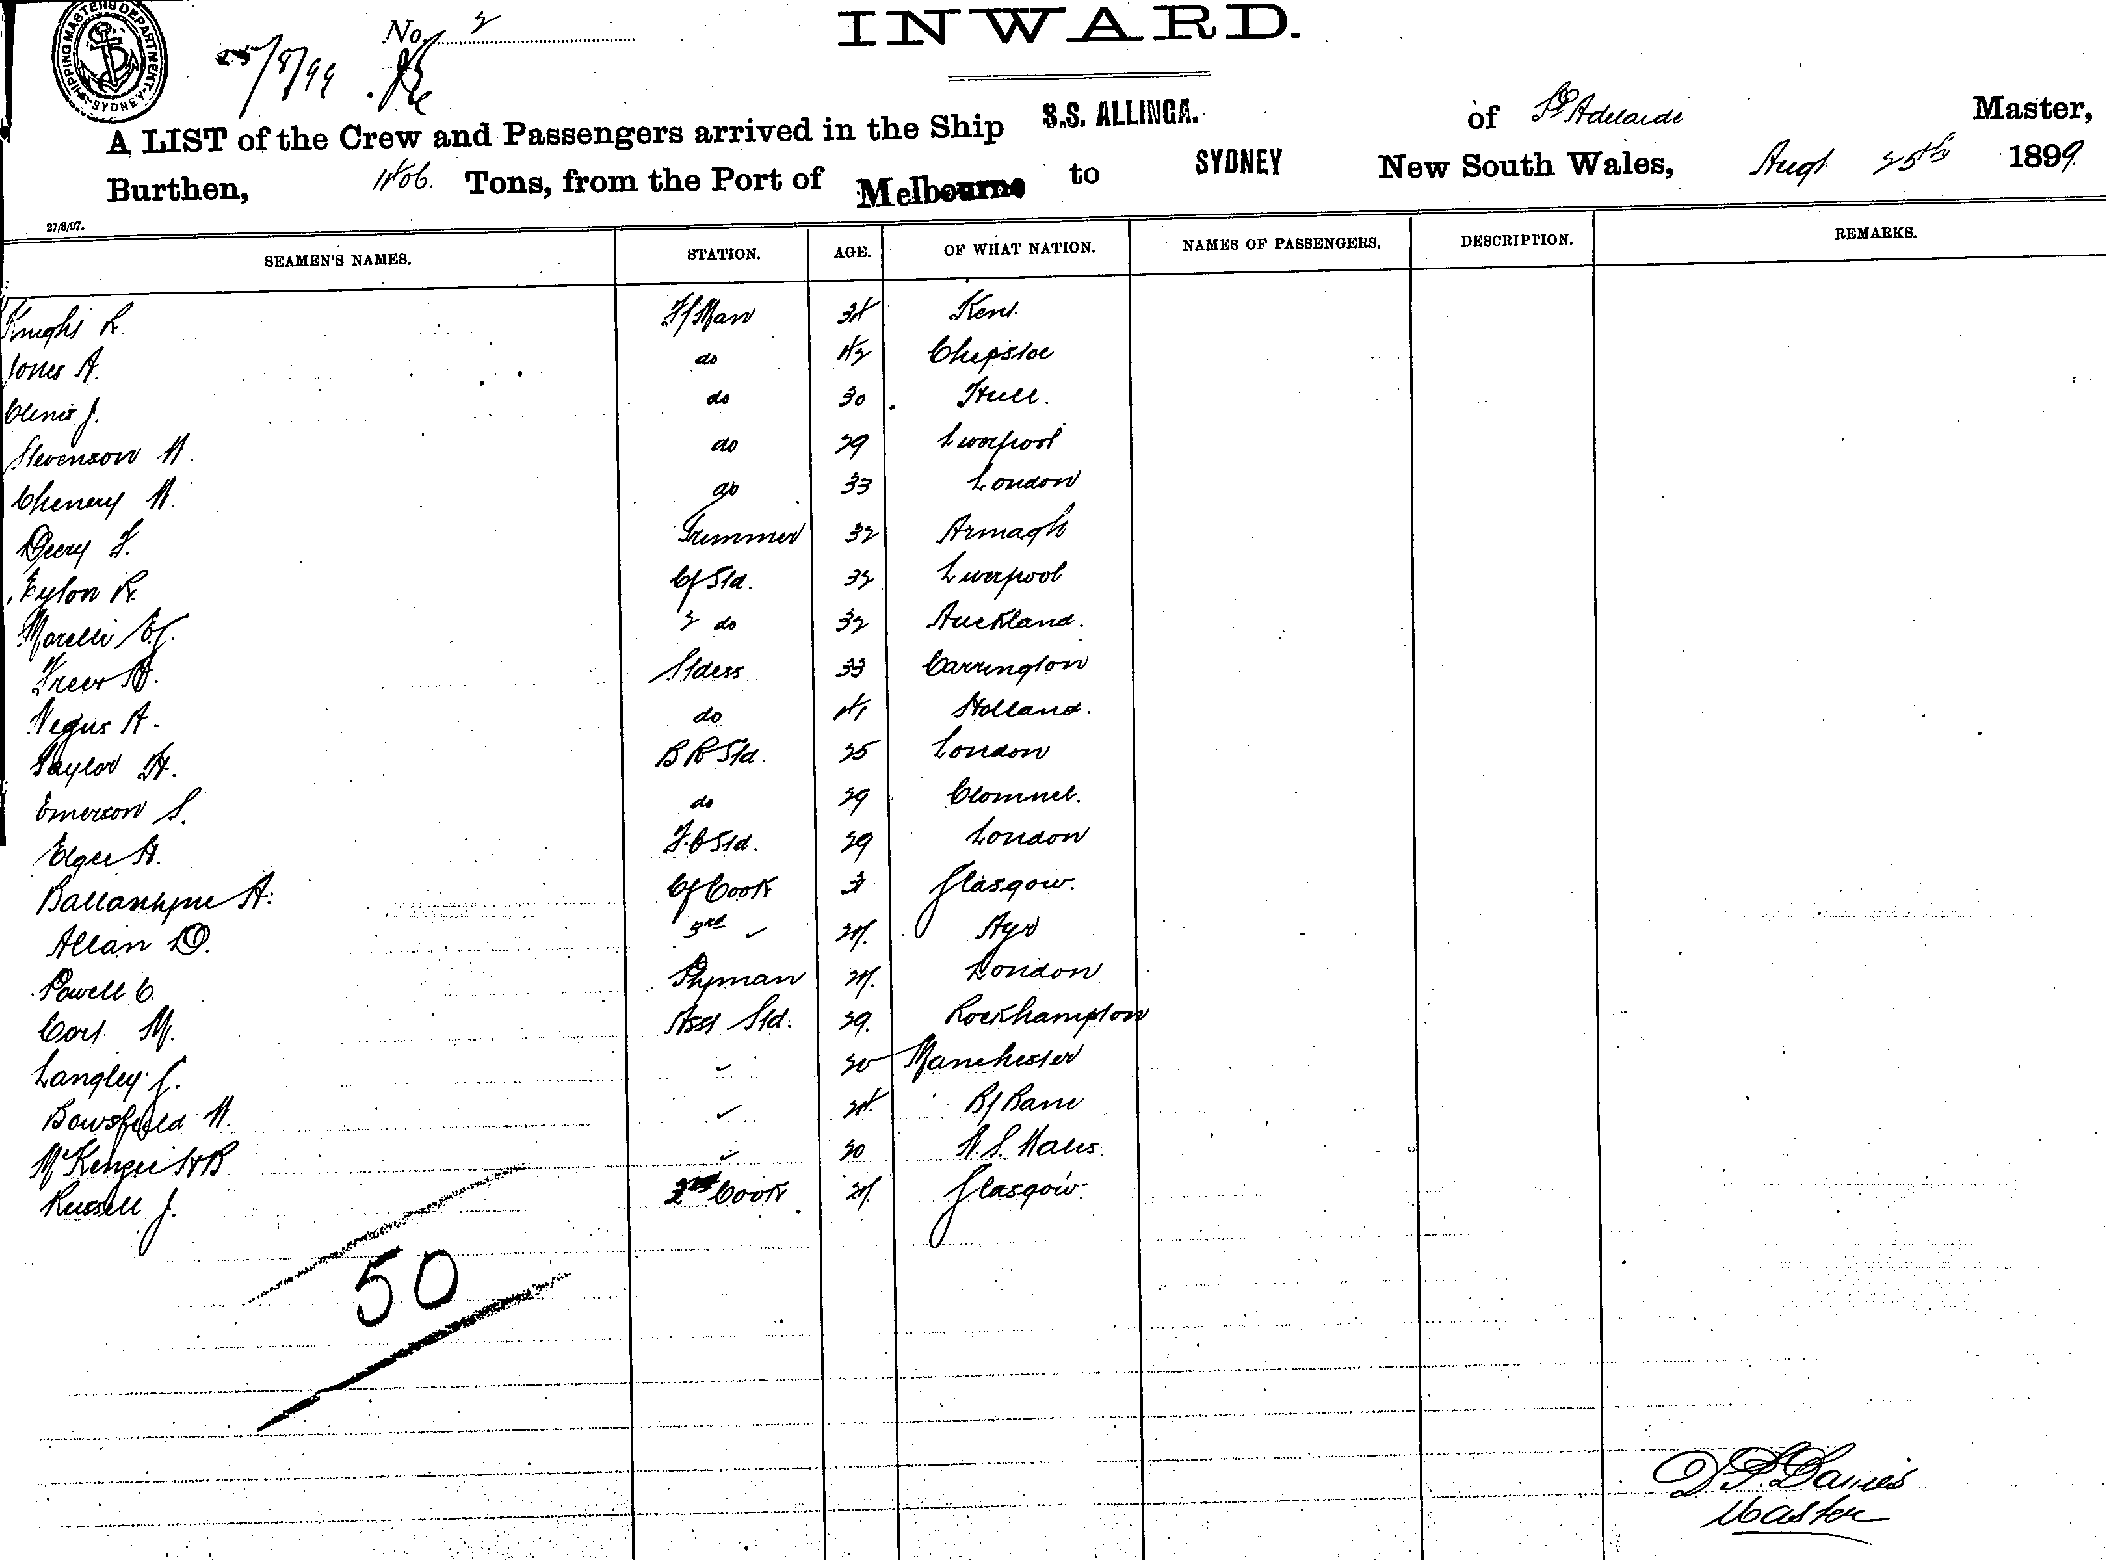 SHIPPING MASTERS DEPARTMENT SYDNEY
No. 2
25/8/99
INWARD.
A LIST of the Crew and Passengers arrived in the Ship S.S. ALLINGA. of Pt Adelaide Master,
Burthen, 1406. Tons, from the Port of Melbourne to SYDNEY New South Wales, Augt 25th 1899.
27/8/97.
SEAMEN'S NAMES. STATION. AGE. OF WHAT NATION. NAMES OF PASSENGERS. DESCRIPTION. REMARKS.
Knight R. F/Man 34 Kent.
Jones A. do 42 Chepstoe
Clems J. do 30 Hull.
Stevenson W. do 29 Liverpool
Chenery W. do 33 London
Deery F. Trimmer 32 Armagh
Eylon R. Cf Std. 32 Liverpool
Morelli Ef. 2 do 32 Auckland.
Freer A. Stdess 33 Carrington
Negus A. do 41 Holland.
Taylor H. B R Std. 25 London
Emerson S. do 29 Clomnel.
Elger H. F.C Std. 29 London
Ballantyne A. Cf Cook Glasgow.
Allan D. 3rd ✓ 24. Ayr
Powell C. Pyman 24. London
Cort M. Asst Std. 29. Rockhampton
Langley J. ✓ 20 Manchester
Bowsfield W. ✓ 24. B/Bane
McKenzie H B ✓ 20 N. S. Wales.
Russell J. 2nd Cook 24. Glasgow.
50
D P Davies
Master